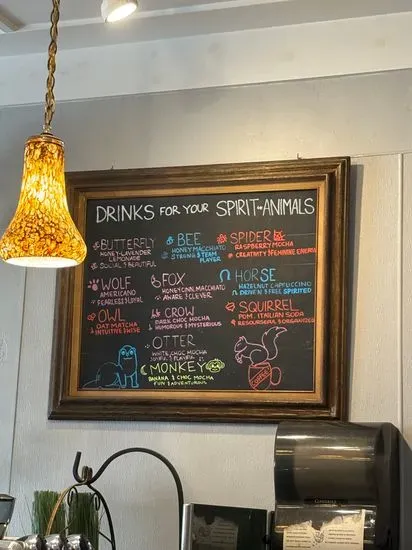 DRINKS FOR YOUR SPIRIT ANIMALS
BUTTERFLY
HONEY-LAVENDER
LEMONADE
SOCIAL & BEAUTIFUL
BEE
HONEY MACCHIATO
STRONG & TEAM
PLAYER
SPIDER
RASPBERRY MOCHA
CREATIVITY & FEMININE ENERGY
WOLF
AMERICANO
FEARLESS & LOYAL
FOX
HONEYCINN MACCHIATO
AWARE & CLEVER
HORSE
HAZELNUT CAPPUCCINO
DRIVEN & FREE SPIRITED
OWL
OAT MATCHA
INTUITIVE & WISE
CROW
DARK CHOC MOCHA
HUMOROUS & MYSTERIOUS
SQUIRREL
POM. ITALIAN SODA
RESOURCEFUL & ORGANIZED
OTTER
WHITE CHOC MOCHA
& PLAYFUL
MONKEY
BANANA & CHOC MOCHA
FUN & ADVENTUROUS